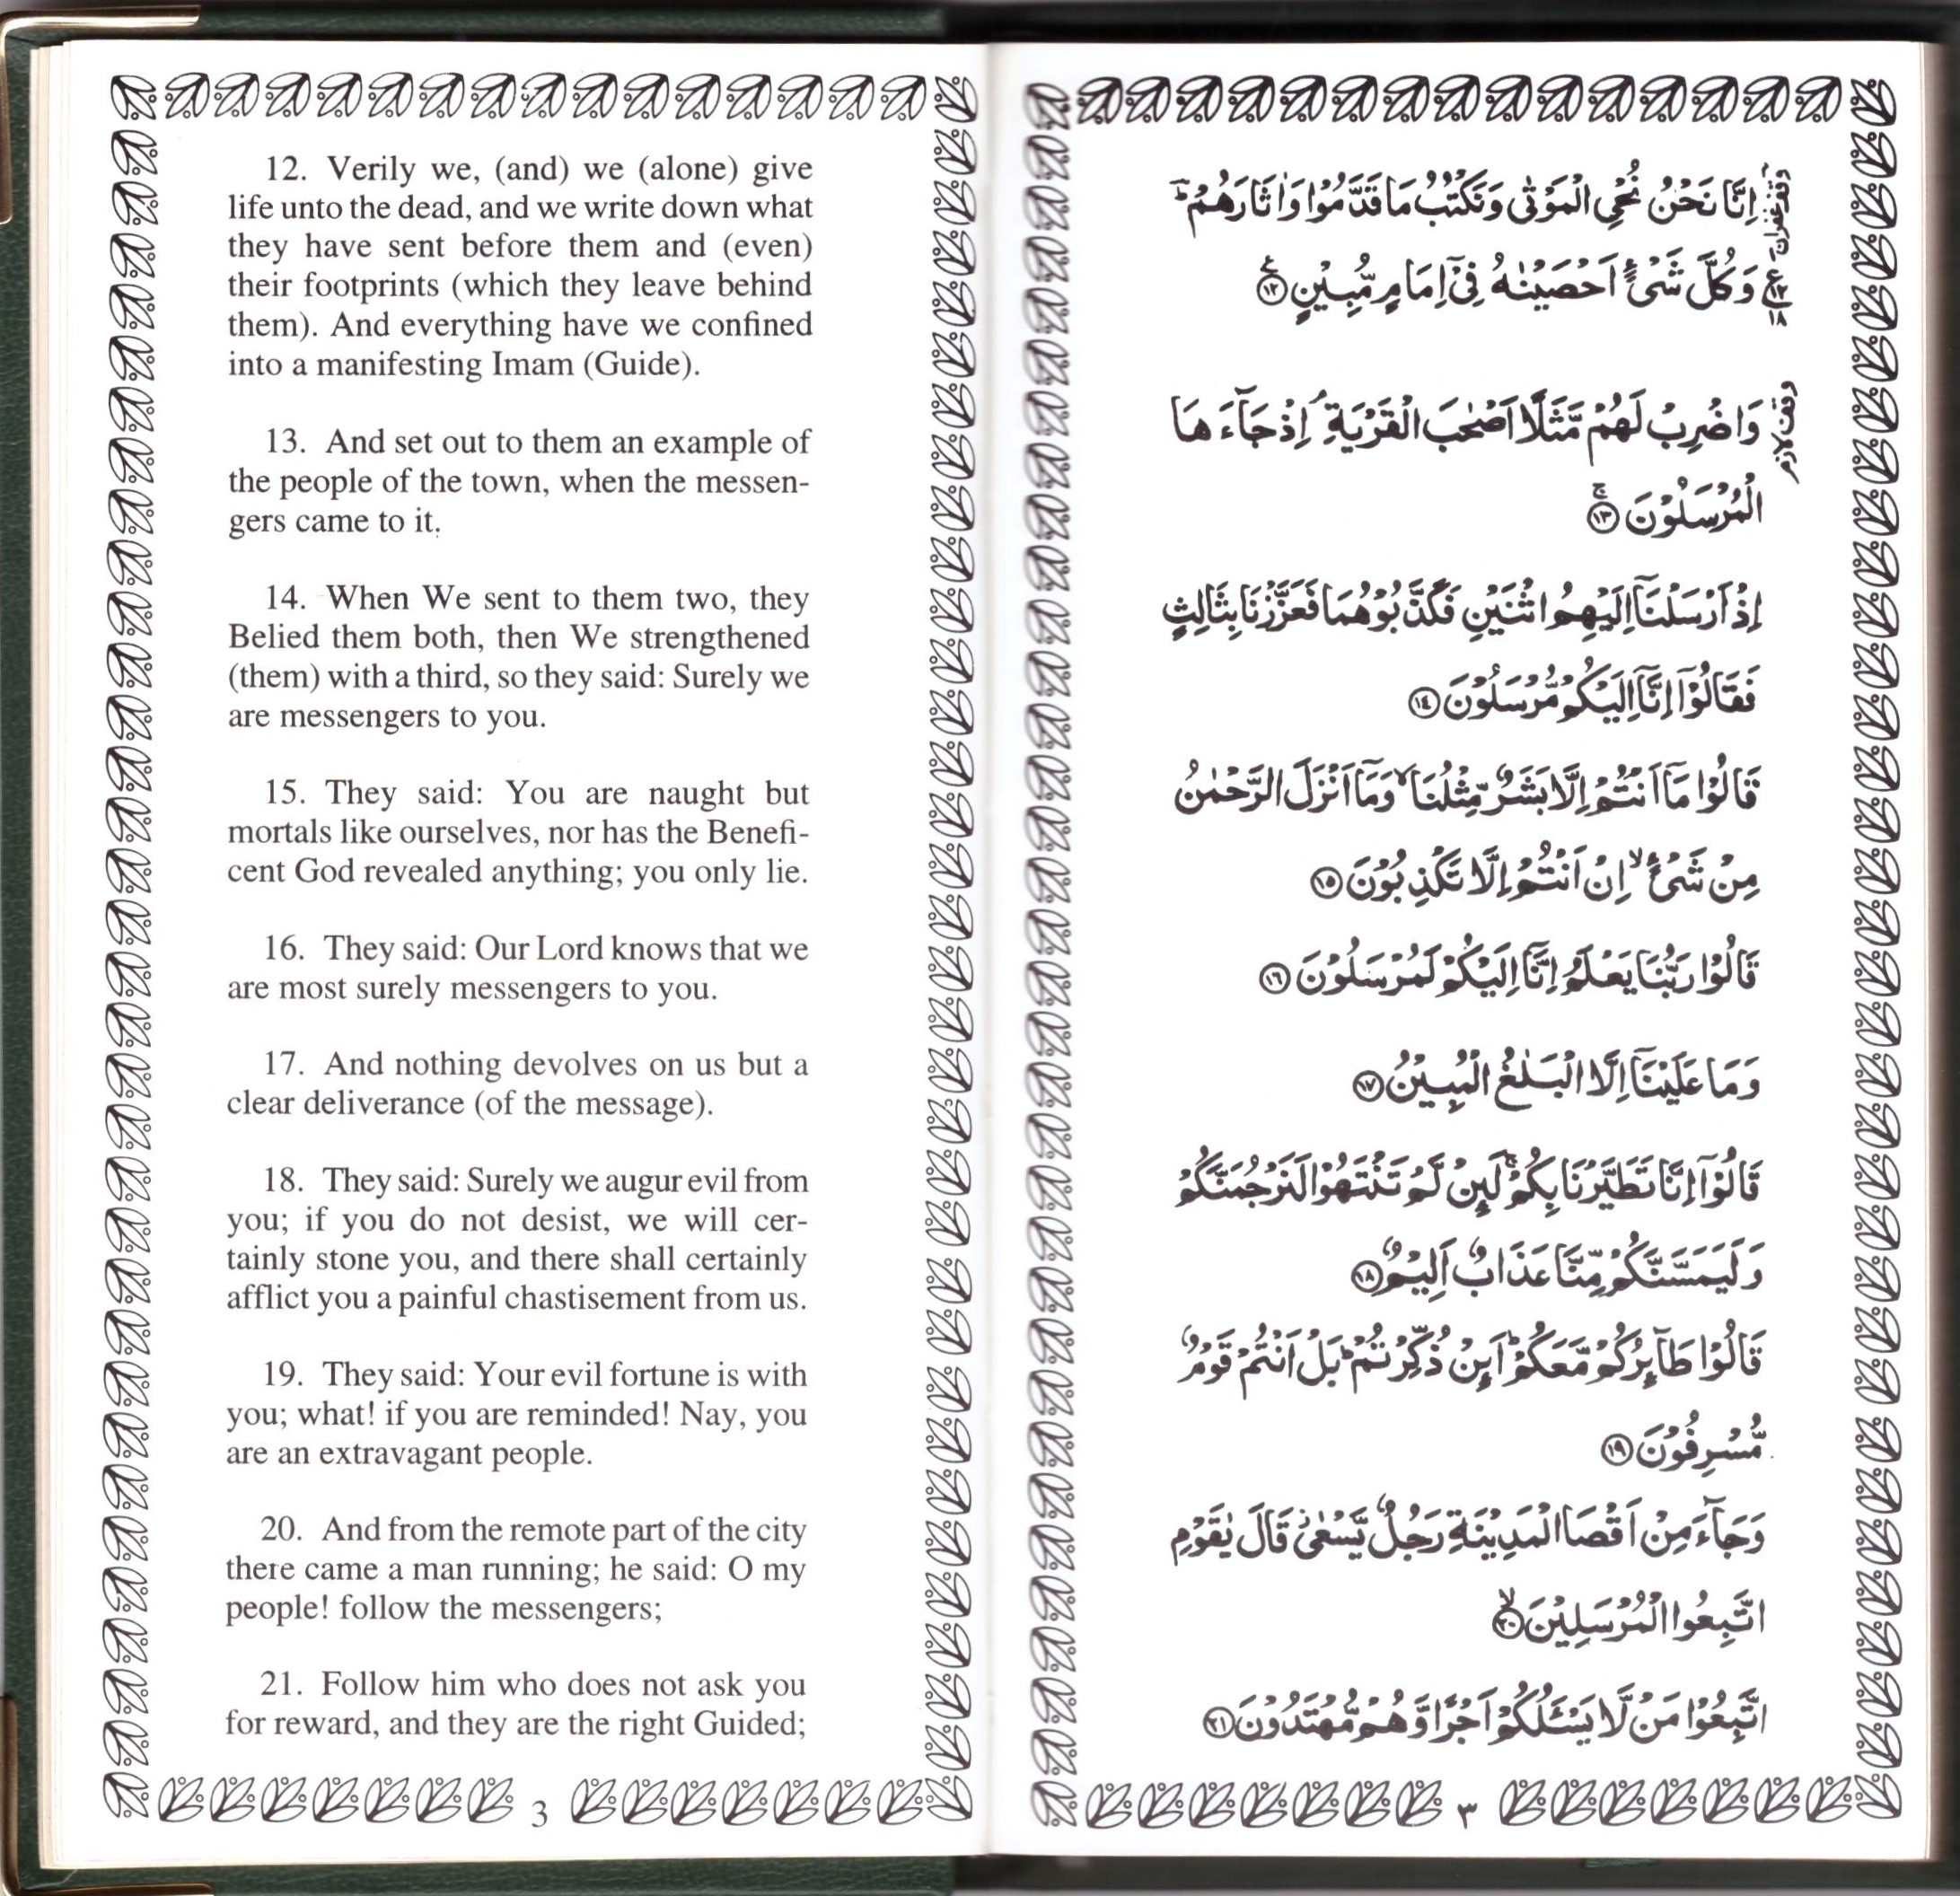 12. Verily we, (and) we (alone) give
life unto the dead, and we write down what
they have sent before them and (even)
their footprints (which they leave behind
them). And everything have we confined
into a manifesting Imam (Guide).
13. And set out to them an example of
the people of the town, when the messen-
gers came to it.
14. When We sent to them two, they
Belied them both, then We strengthened
(them) with a third, so they said: Surely we
are messengers to you.
15. They said: You are naught but
mortals like ourselves, nor has the Benefi-
cent God revealed anything; you only lie.
16. They said: Our Lord knows that we
are most surely messengers to you.
17. And nothing devolves on us but a
clear deliverance (of the message).
18. They said: Surely we augur evil from
you; if you do not desist, we will cer-
tainly stone you, and there shall certainly
afflict you a painful chastisement from us.
19. They said: Your evil fortune is with
you; what! if you are reminded! Nay, you
are an extravagant people.
20. And from the remote part of the city
there came a man running; he said: O my
people! follow the messengers;
21. Follow him who does not ask you
for reward, and they are the right Guided;
3
اِنَّا نَحْنُ نُحْیِ الْمَوْتٰى وَنَكْتُبُ مَا قَدَّمُوْا وَاٰثَارَهُمْ ؕ
وَكُلَّ شَیْءٍ اَحْصَیْنٰهُ فِیْۤ اِمَامٍ مُّبِیْنٍ ۱۲
وَاضْرِبْ لَهُمْ مَّثَلًا اَصْحٰبَ الْقَرْیَةِ ۘ اِذْ جَآءَهَا
الْمُرْسَلُوْنَ ۱۳
اِذْ اَرْسَلْنَاۤ اِلَیْهِمُ اثْنَیْنِ فَكَذَّبُوْهُمَا فَعَزَّزْنَا بِثَالِثٍ
فَقَالُوْۤا اِنَّاۤ اِلَیْكُمْ مُّرْسَلُوْنَ ۱٤
قَالُوْا مَاۤ اَنْتُمْ اِلَّا بَشَرٌ مِّثْلُنَا ۙ وَمَاۤ اَنْزَلَ الرَّحْمٰنُ
مِنْ شَیْءٍ ۙ اِنْ اَنْتُمْ اِلَّا تَكْذِبُوْنَ ۱۵
قَالُوْا رَبُّنَا یَعْلَمُ اِنَّاۤ اِلَیْكُمْ لَمُرْسَلُوْنَ ۱٦
وَمَا عَلَیْنَاۤ اِلَّا الْبَلٰغُ الْمُبِیْنُ ۱۷
قَالُوْۤا اِنَّا تَطَیَّرْنَا بِكُمْ ۚ لَىِٕنْ لَّمْ تَنْتَهُوْا لَنَرْجُمَنَّكُمْ
وَلَیَمَسَّنَّكُمْ مِّنَّا عَذَابٌ اَلِیْمٌ ۱۸
قَالُوْا طَآىِٕرُكُمْ مَّعَكُمْ ؕ اَىِٕنْ ذُكِّرْتُمْ ؕ بَلْ اَنْتُمْ قَوْمٌ
مُّسْرِفُوْنَ ۱۹
وَجَآءَ مِنْ اَقْصَا الْمَدِیْنَةِ رَجُلٌ یَّسْعٰى قَالَ یٰقَوْمِ
اتَّبِعُوا الْمُرْسَلِیْنَ ۲۰
اتَّبِعُوْا مَنْ لَّا یَسْـَٔلُكُمْ اَجْرًا وَّهُمْ مُّهْتَدُوْنَ ۲۱
وقف غفران
ع
۱۲
۱۸
وقف لازم
۳